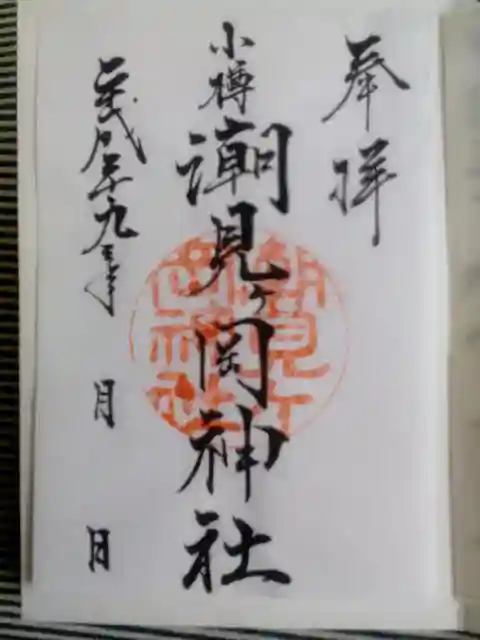 奉拝
小樽
潮見ヶ岡神社
平成二十九年 月 日
潮見ヶ岡神社